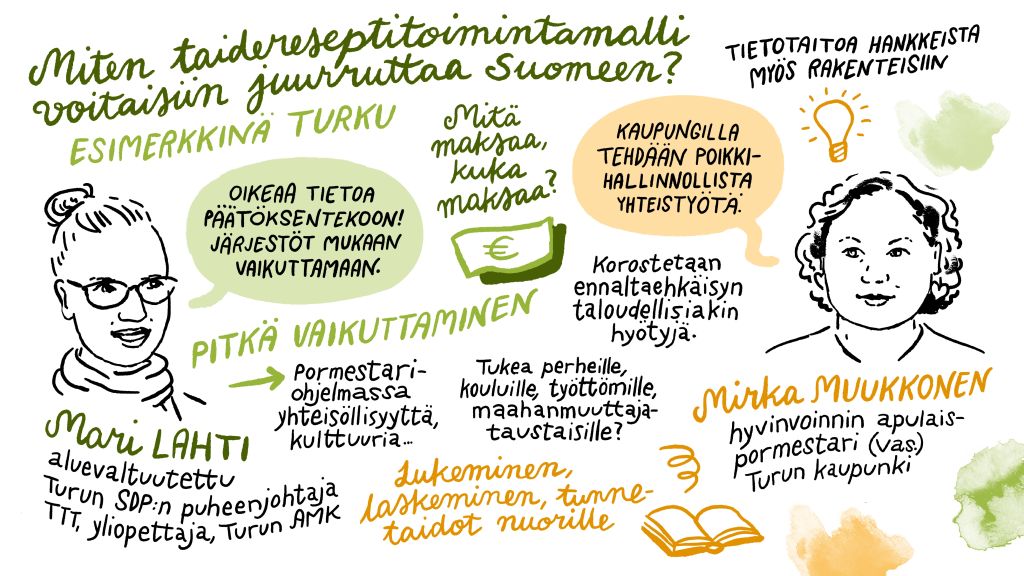 Miten taidereseptitoimintamalli
voitaisiin juurruttaa Suomeen?
ESIMERKKINÄ TURKU
TIETOTAITOA HANKKEISTA
MYÖS RAKENTEISIIN
OIKEAA TIETOA
PÄÄTÖKSENTEKOON!
JÄRJESTÖT MUKAAN
VAIKUTTAMAAN.
Mitä
maksaa,
kuka
maksaa?
€
KAUPUNGILLA
TEHDÄÄN POIKKI-
HALLINNOLLISTA
YHTEISTYÖTÄ.
Korostetaan
ennaltaehkäisyn
taloudellisiakin
hyötyjä.
PITKÄ VAIKUTTAMINEN
Pormestari-
ohjelmassa
yhteisöllisyyttä,
kulttuuria...
Tukea perheille,
kouluille, työttömille,
maahanmuuttaja-
taustaisille?
Mari LAHTI
aluevaltuutettu
Turun SDP:n puheenjohtaja
TTT, yliopettaja, Turun AMK
Lukeminen,
laskeminen, tunne-
taidot nuorille
Mirka MUUKKONEN
hyvinvoinnin apulais-
pormestari (vas.)
Turun kaupunki